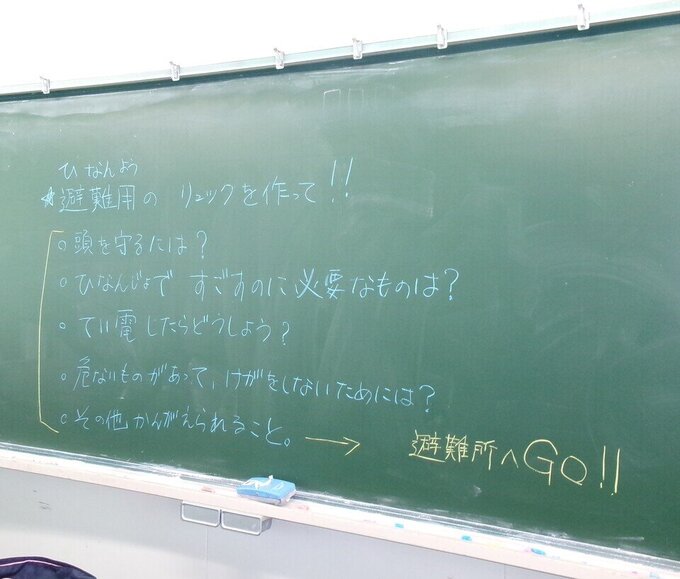 ひなんよう
☆避難用の リュックを作って!!
○頭を守るには?
○ひなんじょで すごすのに必要なものは?
○てい電したらどうしよう?
○危ないものがあって、けがをしないためには?
○その他かんがえられること。 → 避難所へGO!!